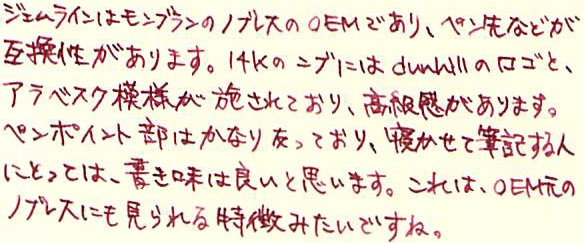 ジェムラインはモンブランのノブレスのOEMであり、ペン先などが
互換性があります。14Kのニブにはdunhillのロゴと、
アラベスク模様が施されており、高級感があります。
ペンポイント部はかなり反っており、寝かせて筆記する人
にとっては、書き味は良いと思います。これは、OEM元の
ノブレスにも見られる特徴みたいですね。